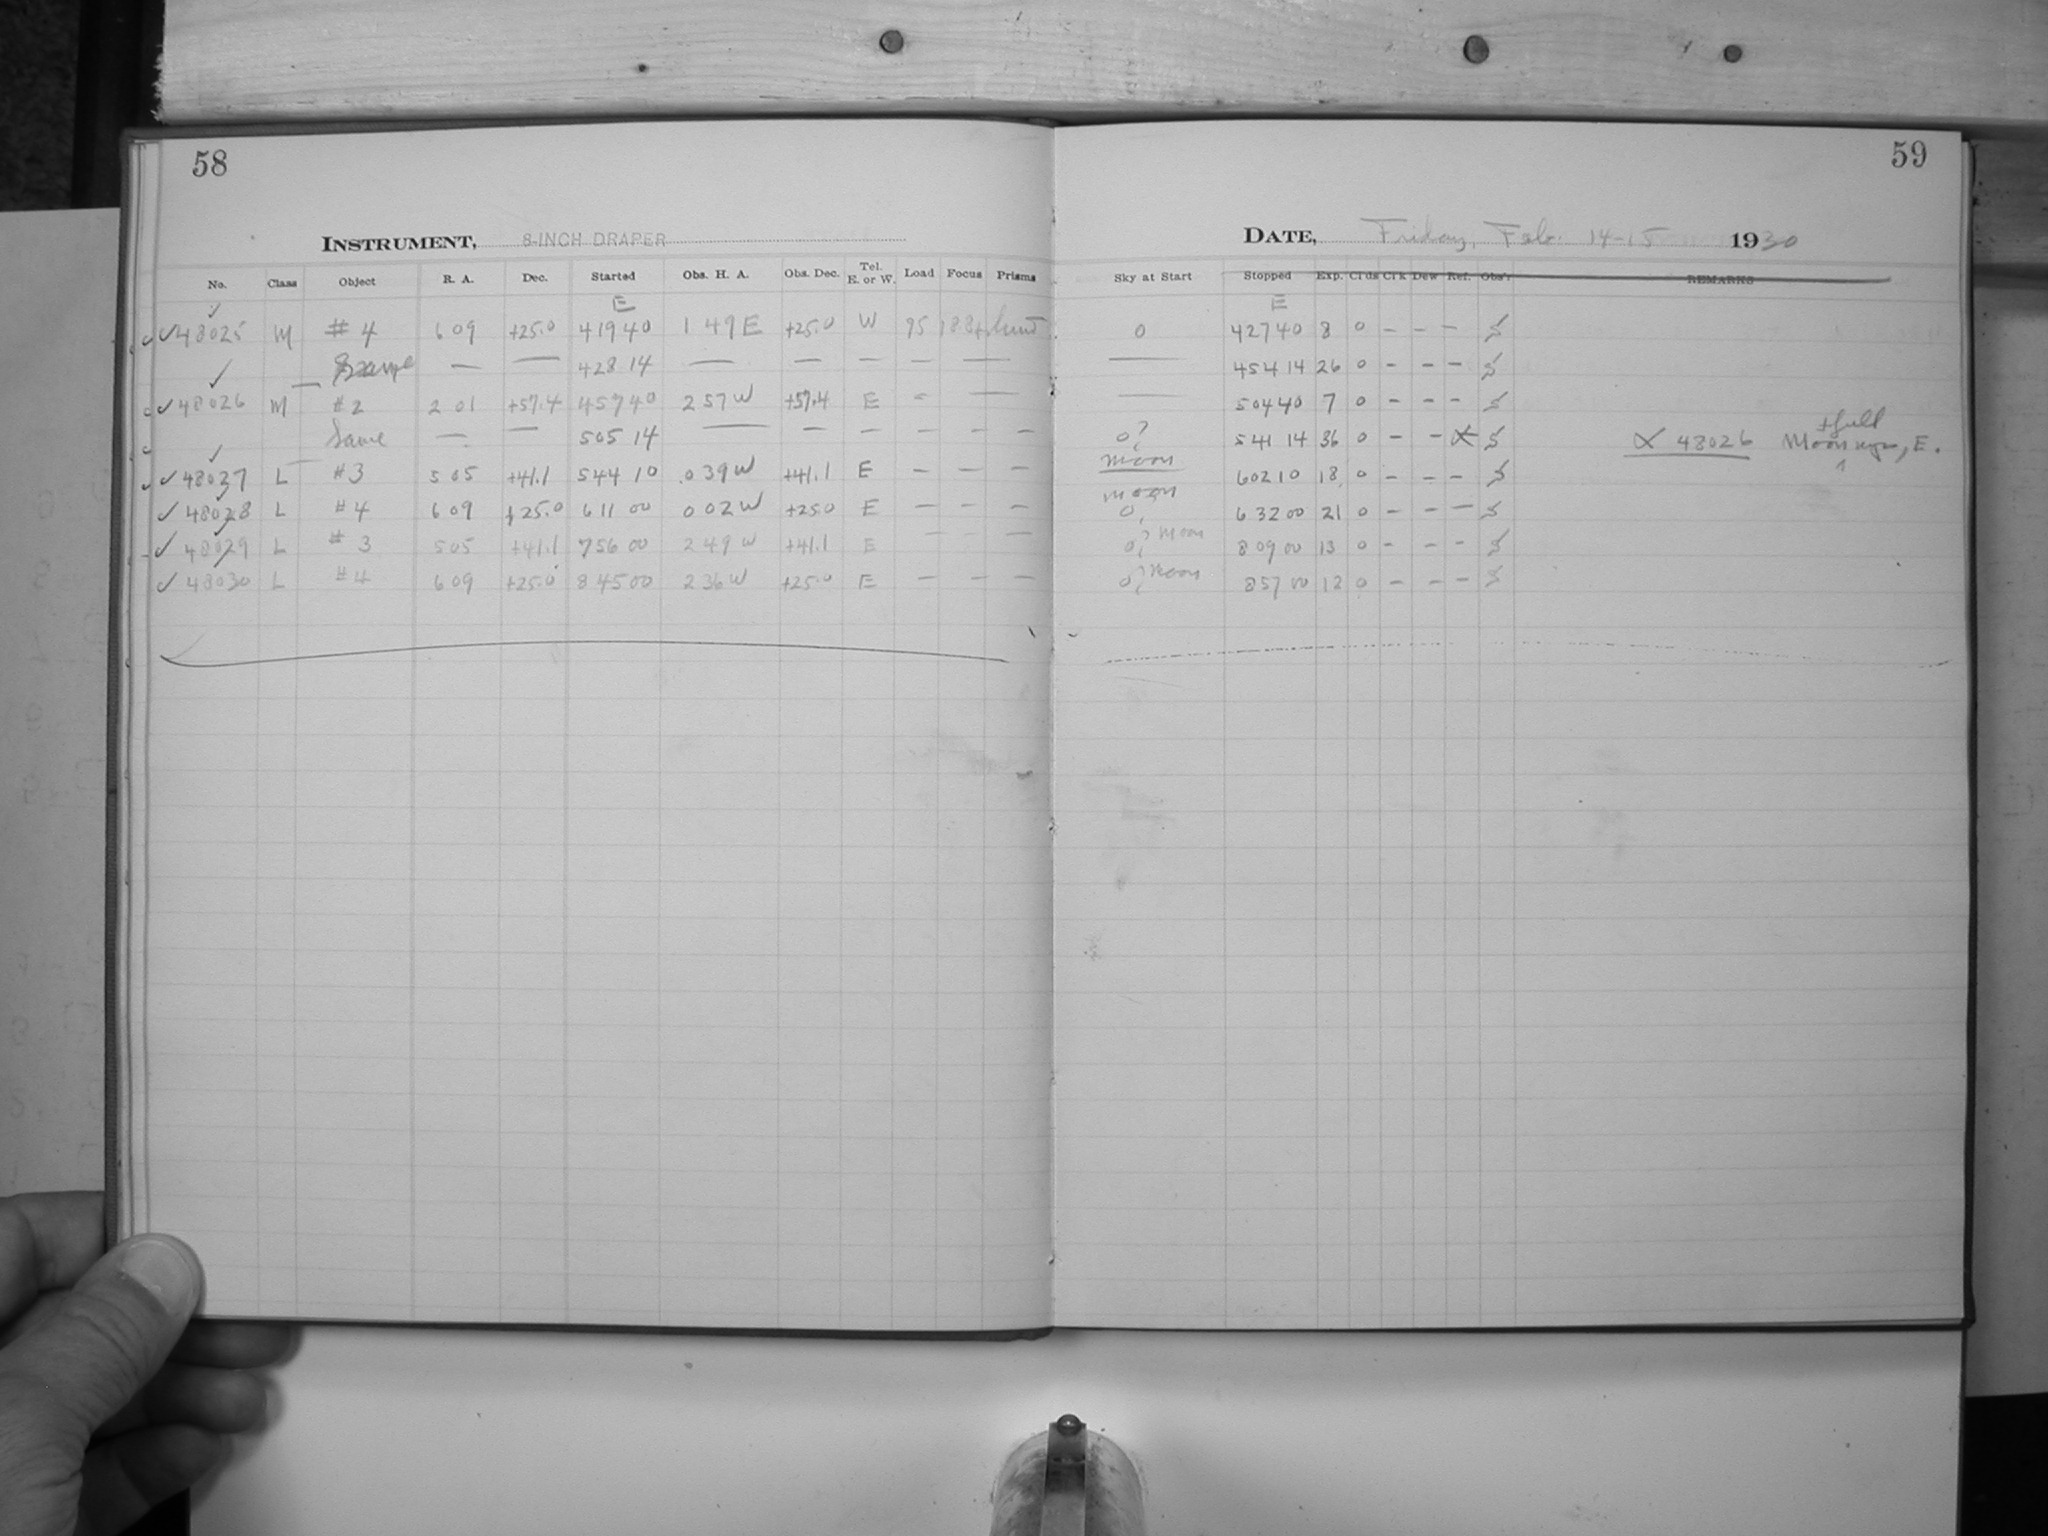 58
INSTRUMENT, 8-INCH DRAPER
No. Class Object R. A. Dec. Started Obs. H. A. Obs. Dec. Tel. E. or W. Load Focus Prisms
E
✓48025 M #4 6 09 +25.0 4 19 40 1 49 E +25.0 W 95
Same — — 4 28 14 — — — — —
✓48026 M #2 2 01 +57.4 4 57 40 2 57 W +57.4 E - —
Same — — 5 05 14 — — — — — —
✓48027 L #3 5 05 +41.1 5 44 10 0 39 W +41.1 E — — —
✓48028 L #4 6 09 +25.0 6 11 00 0 02 W +25.0 E — — —
✓48029 L #3 5 05 +41.1 7 56 00 2 49 W +41.1 E — — —
✓48030 L #4 6 09 +25.0 8 45 00 2 36 W +25.0 E — — —
59
DATE, Friday, Feb. 14-15 1930
Sky at Start Stopped Exp. Clds Clk Dew Ref. Obs'r REMARKS
E
0 4 27 40 8 0 - - -
— 4 54 14 26 0 - - -
— 5 04 40 7 0 - - -
0? 5 41 14 36 0 - - X X 48026 Moon, E. + full
moon 6 02 10 18 0 - - -
moon
0, 6 32 00 21 0 - - -
0, moon 8 09 00 13 0 - - -
0, moon 8 57 00 12 0 - - -